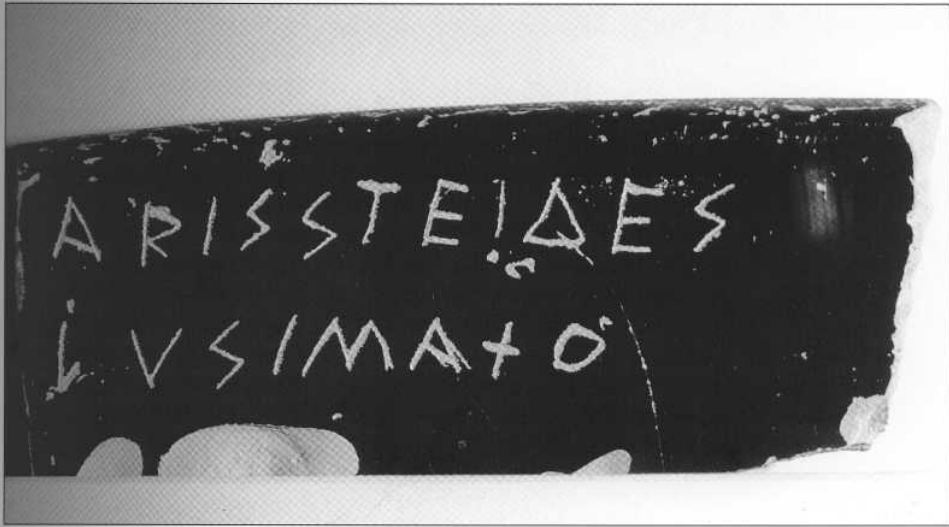 ΑΡΙΣΣΤΕΙΔΕΣ
ΛΥΣΙΜΑΧΟ